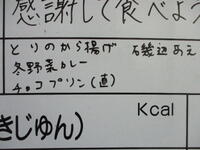 感謝して食べよう
とりのから揚げ 石幾辺あえ
冬野菜カレー
チョコプリン(直)
Kcal
きじゅん)